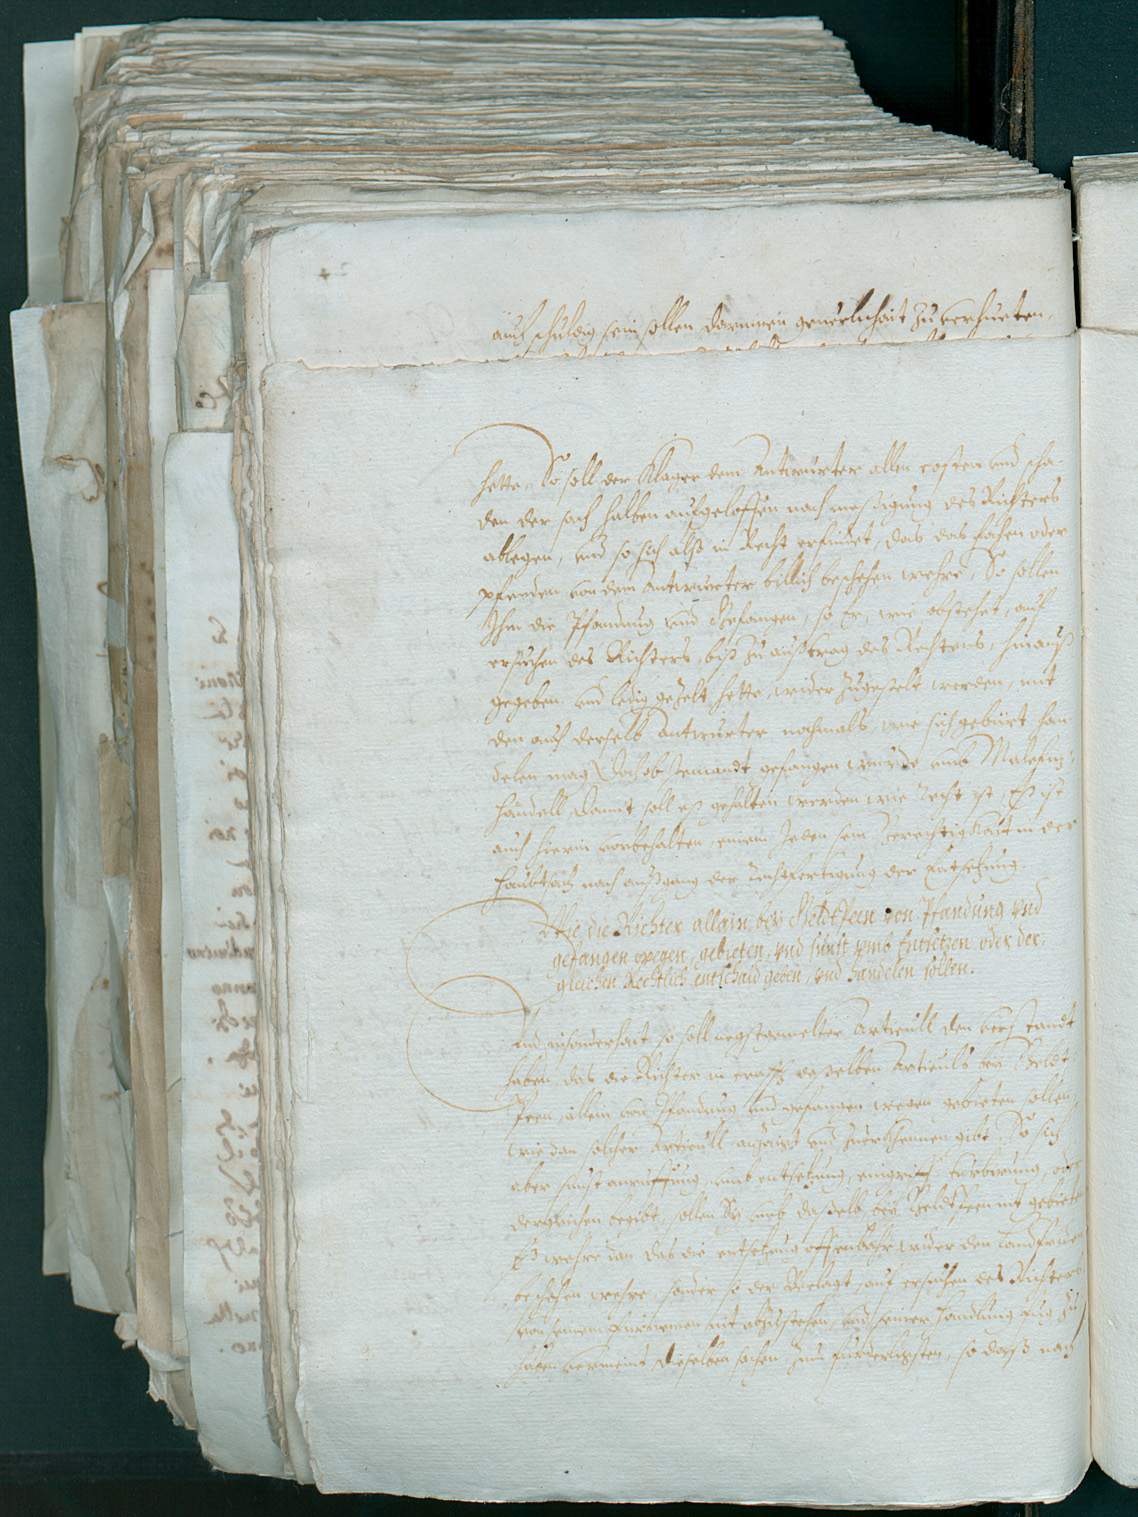 auch schuldig sein sollen darinnen geuerlichait zu verhueten,
hette, So soll der Klager dem Antwurter allen costen und scha-
den der sach halben aufgeloffen nach messigung des Richters
ablegen, und so sich alß in Recht erfindet, das das fachen oder
pfenden von dem Antwurter billich beschehen wehre, So sollen
Ihm die Pfandung und Gefangen, so Er, wie obstehet, auf
ersuchen des Richters, biß zu außtrag des Rechtens, hinauß
gegeben und ledig gezelt hette, wider zugestelt werden, mit
den auch derselb Antwurter nachmals, wie sich gebürt han
delen mag, Doch ob Jemandt gefangen wurde umb Malefiz-
händell, damit soll es gehalten werden wie Recht ist, Es ist
auch hierin vorbehalten einem Jeden sein Gerechtigkait in der
Haubtsach nach außgang der Rechtfertigung der Entsetzung.
Wie die Richter allain bey Geldtpeen von Pfandung vnd
gefangen wegen, gebieten, vnd sunst vmb Entsetzen oder der-
gleichen Rechtlich entschaid geben, vnd handelen sollen.
Und in sonderhait so soll negstgemelter Articull den verstandt
haben, das die Richter in crafft desselben Articuls bey Geldt
Peen, allein von Pfandung und gefangen wegen gebieten sollen,
wie dan solcher Articull anzaigt und zuerkhennen gibt, So sich
aber sunst anruffung umb entsetzung, eingriff turbirung, oder
dergleichen begibt, sollen Sy umb dasselb, bey Geldtpeen nit gebieten
Es wehre dan das die entsetzung offenbahr wider den Landtfriden
beschehen wehre, sonder so der Beclagt, auf ersuchen des Richters
von seinem furnemen nit abzustehen, und seiner handlung fug zu
haben vermeint dieselben sachen zum furderlichsten, so daß nach